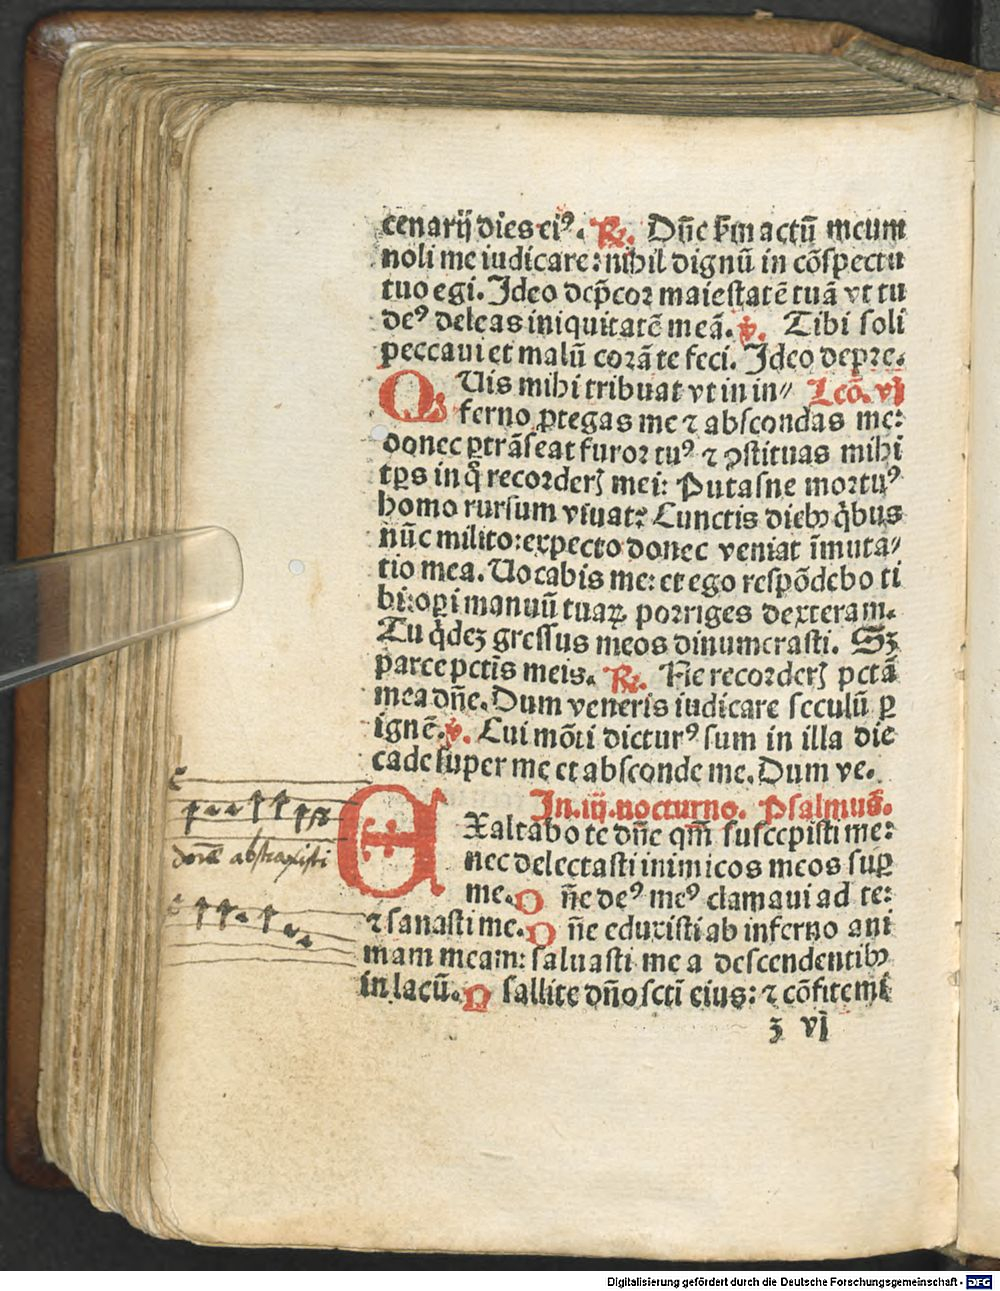 cenarij dies eiꝰ. ℟. Dn̄e ẜm actū meum
noli me iudicare: nihil dignū in cōspectu
tuo egi. Ideo dep̄cor maiestatē tuā vt tu
deꝰ deleas iniquitatē meā. ℣. Tibi soli
peccaui et malū corā te feci. Ideo depre.
QUis mihi tribuat vt in in⸗ Lcō. vj
ferno ꝓtegas me ⁊ abscondas me:
donec ꝑtrāseat furor tuꝰ ⁊ ꝯstituas mihi
tp̄s in q̄ recorderꝫ mei: Putasne mortuꝰ
homo rursum viuat: Cunctis diebꝰ q̇bus
nūc milito: expecto donec veniat īmuta⸗
tio mea. Uocabis me: et ego respōdebo ti
bi: oꝑi manuū tuaꝝ porriges dexteram.
Tu q̇dez gressus meos dinumerasti. Sꝫ
parce pctīs meis. ℟. Ne recorderꝫ pctā
mea dn̄e. Dum veneris iudicare seculū ꝑ
ignē. ℣. Cui mōti dicturꝰ sum in illa die
cade super me et absconde me. Dum ve.
In. iij. nocturno. Psalmus.
EXaltabo te dn̄e qm̄ suscepisti me:
nec delectasti inimicos meos suꝑ
me. Dn̄e deꝰ meꝰ clamaui ad te:
⁊ sanasti me. Dn̄e eduxisti ab inferno ani
mam meam: saluasti me a descendentibꝰ
in lacū. Psallite dn̄o sctī eius: ⁊ cōfitemi
z vj
abstraxisti
Digitalisierung gefördert durch die Deutsche Forschungsgemeinschaft - DFG